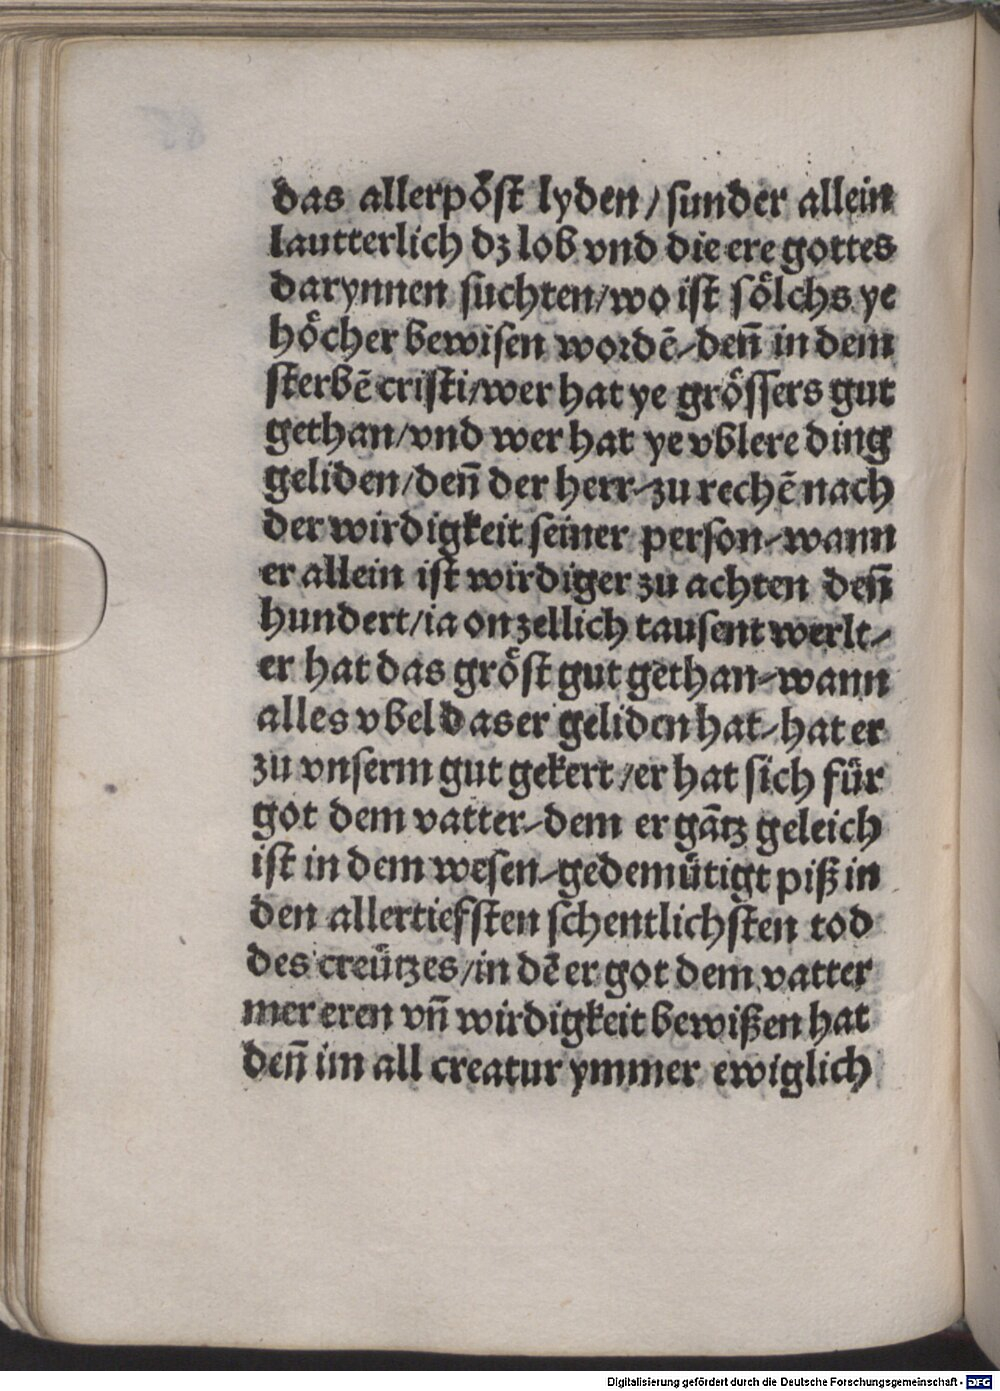 das allerpoͤst lyden / sunder allein
lautterlich dz lob vnd die ere gottes
darynnen suchten / wo ist soͤlchs ye
hoͤcher bewisen wordē / den̄ in dem
sterbē cristi / wer hat ye groͤssers gut
gethan / vnd wer hat ye vblere ding
geliden / den̄ der herr / zu rechē nach
der wirdigkeit seiner person / wann
er allein ist wirdiger zu achten den̄
hundert / ia onzellich tausent werlt /
er hat das groͤst gut gethan / wann
alles vbel das er geliden hat / hat er
zu vnserm gut gekert / er hat sich fuͤr
got dem vatter / dem er gātz geleich
ist in dem wesen / gedemuͤtigt piß in
den allertiefsten schentlichsten tod
des creuͤtzes / in dē er got dem vatter
mer eren vn̄ wirdigkeit bewißen hat
den̄ im all creatur ymmer ewiglich
Digitalisierung gefördert durch die Deutsche Forschungsgemeinschaft - DFG